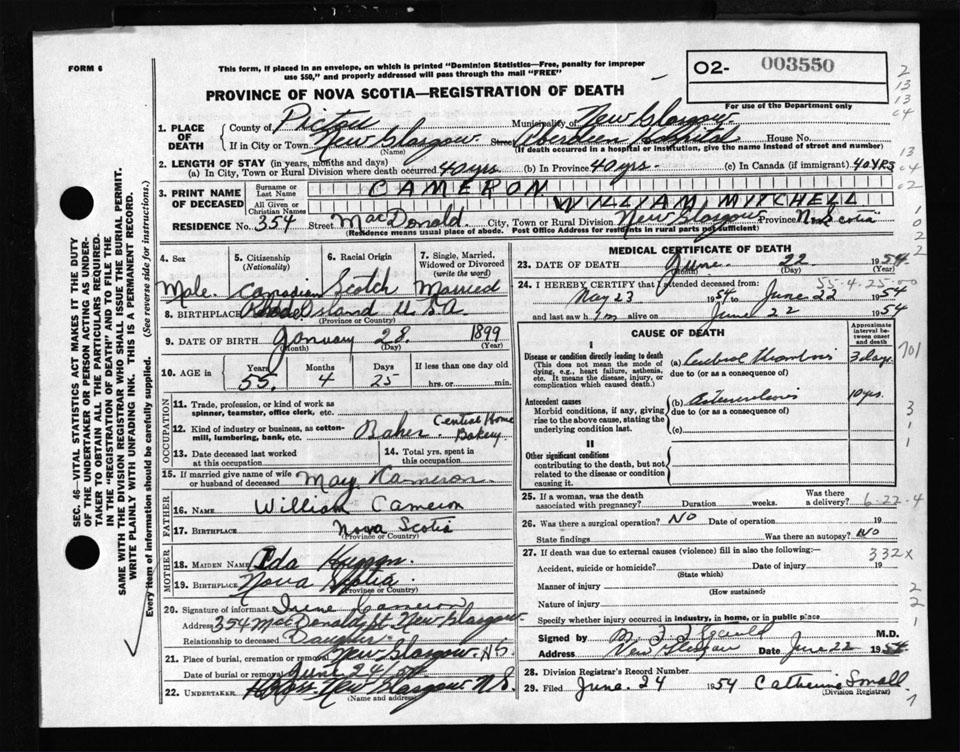 FORM 6
This form, if placed in an envelope, on which is printed "Dominion Statistics—Free, penalty for improper
use $50," and properly addressed will pass through the mail "FREE"
O2- 003550
PROVINCE OF NOVA SCOTIA—REGISTRATION OF DEATH
For use of the Department only
1. PLACE OF DEATH
County of Pictou Municipality of New Glasgow
If in City or Town New Glasgow Street Aberdeen Hospital House No.
(Name) (If death occurred in a hospital or institution, give the name instead of street and number)
2. LENGTH OF STAY (in years, months and days)
(a) In City, Town or Rural Division where death occurred 40 yrs (b) In Province 40 yrs. (c) In Canada (if immigrant) 40 YRS
3. PRINT NAME OF DECEASED
Surname or Last Name CAMERON
All Given or Christian Names WILLIAM MITCHELL
RESIDENCE No. 354 Street MacDonald City, Town or Rural Division New Glasgow Province N. Scotia
(Residence means usual place of abode. Post Office Address for residents in rural parts not sufficient)
4. Sex
Male
5. Citizenship (Nationality)
Canadian
6. Racial Origin
Scotch
7. Single, Married, Widowed or Divorced (write the word)
Married
8. BIRTHPLACE Rhode Island U.S.A
(Province or Country)
9. DATE OF BIRTH January 28 1899
(Month) (Day) (Year)
10. AGE in Years 55 Months 4 Days 25 If less than one day
hrs. or min.
OCCUPATION
11. Trade, profession, or kind of work as spinner, teamster, office clerk, etc.
12. Kind of industry or business, as cotton-mill, lumbering, bank, etc. Baker Central Home Bakery
13. Date deceased last worked at this occupation
14. Total yrs. spent in this occupation
15. If married give name of wife or husband of deceased May Cameron
FATHER
16. Name William Cameron
17. Birthplace Nova Scotia
(Province or Country)
MOTHER
18. MAIDEN NAME Ida
19. BIRTHPLACE Nova Scotia
(Province or Country)
20. Signature of informant Irene Cameron
Address 354 MacDonald St. New Glasgow
Relationship to deceased Daughter
21. Place of burial, cremation or removal New Glasgow NS.
Date of burial or removal June 24
22. UNDERTAKER New Glasgow N.S.
(Name and address)
MEDICAL CERTIFICATE OF DEATH
23. DATE OF DEATH June 22 1954
(Month) (Day) (Year)
55-4-25-00
24. I HEREBY CERTIFY that I attended deceased from:
May 23 1954 to June 22 1954
and last saw him alive on June 22 1954
CAUSE OF DEATH
Approximate interval between onset and death
I
Disease or condition directly leading to death
(This does not mean the mode of dying, e.g., heart failure, asthenia, etc. It means the disease, injury, or complication which caused death.)
(a) Cerebral thrombosis 3 days
due to (or as a consequence of)
Antecedent causes
Morbid conditions, if any, giving rise to the above cause, stating the underlying condition last.
(b) Arteriosclerosis 10 yrs.
due to (or as a consequence of)
(c)
II
Other significant conditions
contributing to the death, but not related to the disease or condition causing it.
25. If a woman, was the death associated with pregnancy? Duration weeks. Was there a delivery? 6-22-4
26. Was there a surgical operation? NO Date of operation 19
State findings Was there an autopsy? NO
27. If death was due to external causes (violence) fill in also the following:— 332X
Accident, suicide or homicide? Date of injury 19
(State which)
Manner of injury
(How sustained)
Nature of injury
Specify whether injury occurred in industry, in home, or in public place
Signed by M.D.
Address New Glasgow Date June 22 1954
28. Division Registrar's Record Number
29. Filed June 24 1954 Catherine Small
(Division Registrar)
SEC. 46—VITAL STATISTICS ACT MAKES IT THE DUTY
OF THE UNDERTAKER OR PERSON ACTING AS UNDER-
TAKER TO OBTAIN ALL THE PARTICULARS REQUIRED
IN THE "REGISTRATION OF DEATH" AND TO FILE THE
SAME WITH THE DIVISION REGISTRAR WHO SHALL ISSUE THE BURIAL PERMIT.
WRITE PLAINLY WITH UNFADING INK. THIS IS A PERMANENT RECORD.
Every item of information should be carefully supplied. (See reverse side for instructions.)